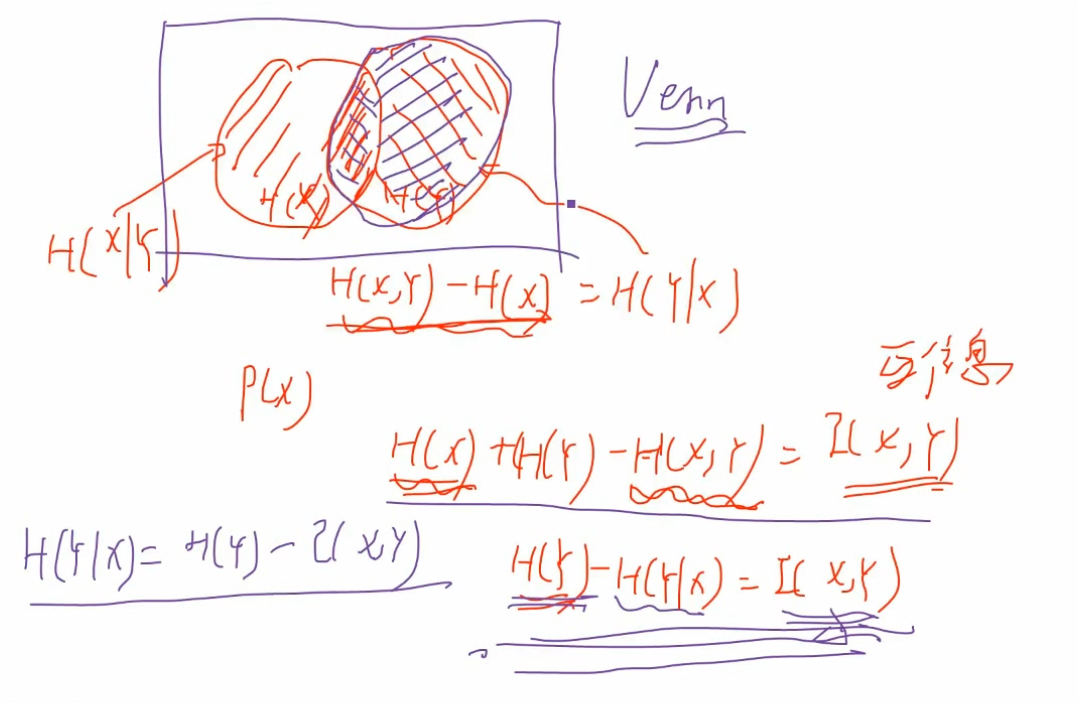 Venn
H(X) H(Y)
H(X|Y)
H(X,Y)-H(X) = H(Y|X)
互信息
P(X)
H(X)+H(Y)-H(X,Y) = I(X,Y)
H(Y|X) = H(Y)-I(X,Y)
H(Y)-H(Y|X) = I(X,Y)